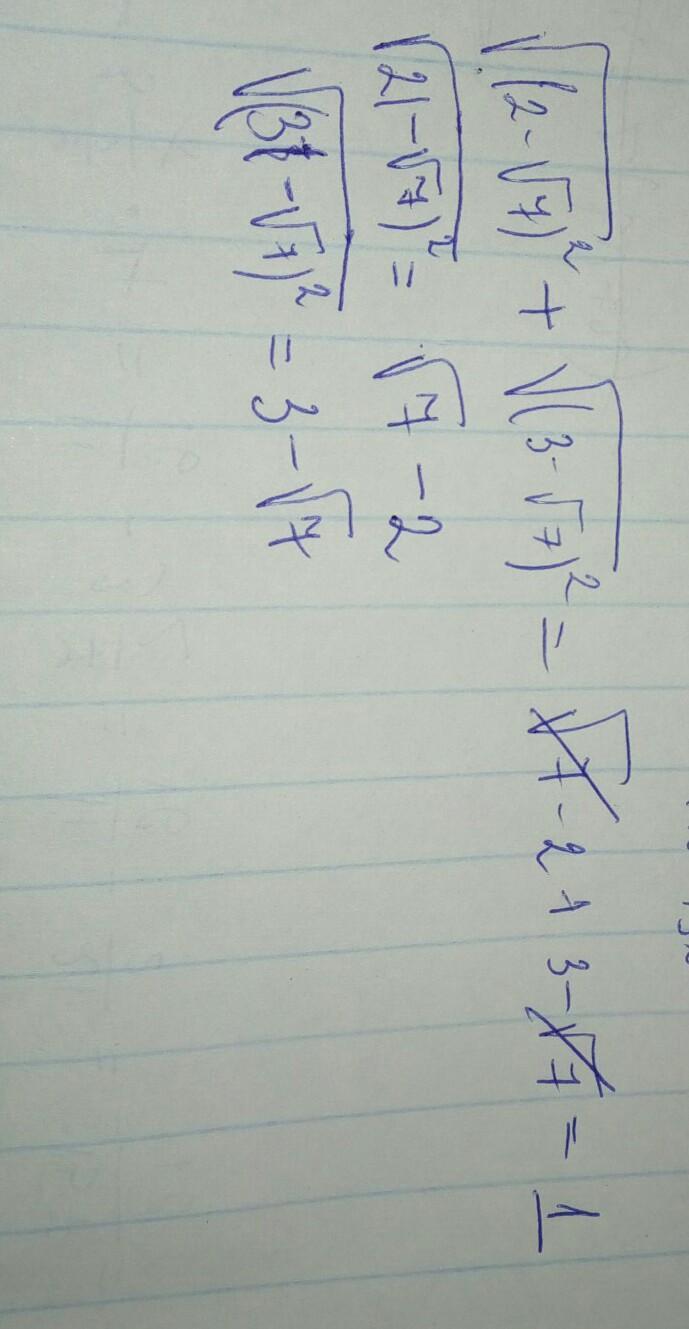 √(2-√7)² + √(3-√7)² = √7 - 2 + 3 - √7 = 1
√2|-√7)² = √7 - 2
√(3-√7)² = 3 - √7